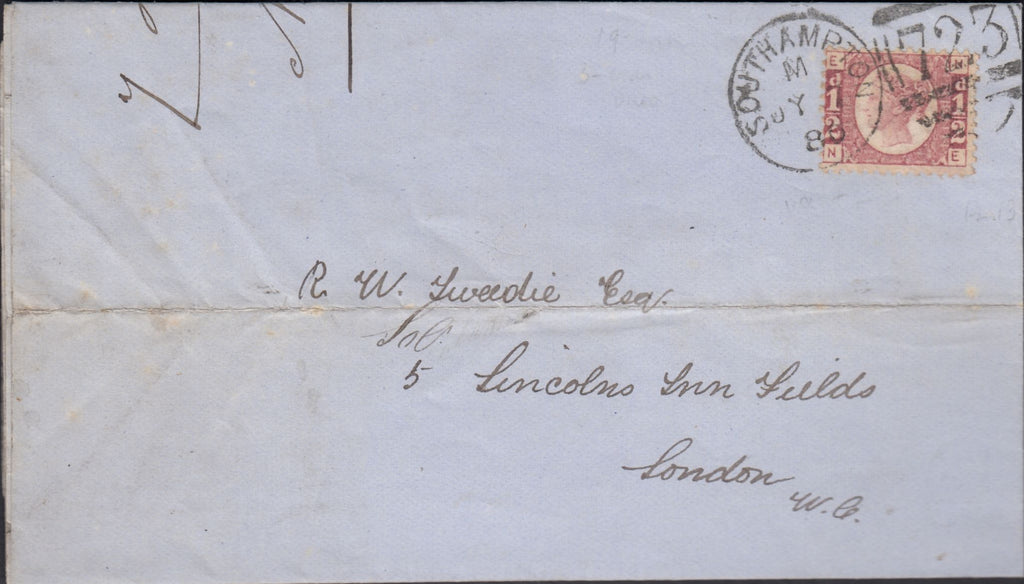 SOUTHAMPTON
M
JY
723
E N
d 1/2 d 1/2
N E
R. W. Tweedie Esq.
Sol.
5 Lincolns Inn Fields
London
W.C.